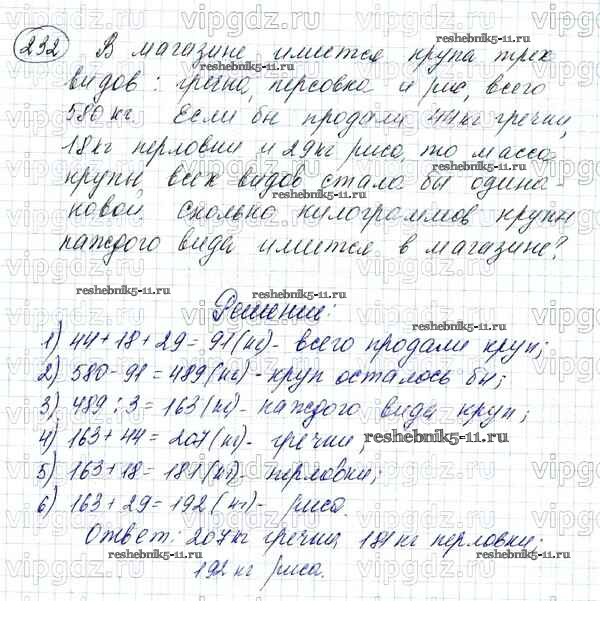 232 В магазине имеется крупа трех
видов: гречка, персовка и рис, всего
580 кг. Если бы продали 44 кг гречки,
18 кг перловки и 29 кг риса, то масса
крупы всех видов стала бы одина-
ковой. Сколько килограммов крупы
каждого вида имеется в магазине?
Решение:
1) 44 + 18 + 29 = 91 (кг) - всего продали круп;
2) 580 - 91 = 489 (кг) - круп осталось бы;
3) 489 : 3 = 163 (кг) - каждого вида круп;
4) 163 + 44 = 207 (кг) - гречки;
5) 163 + 18 = 181 (кг) - перловки;
6) 163 + 29 = 192 (кг) - риса.
Ответ: 207 кг гречки 181 кг перловки;
192 кг риса.
vipgdz.ru
reshebnik5-11.ru